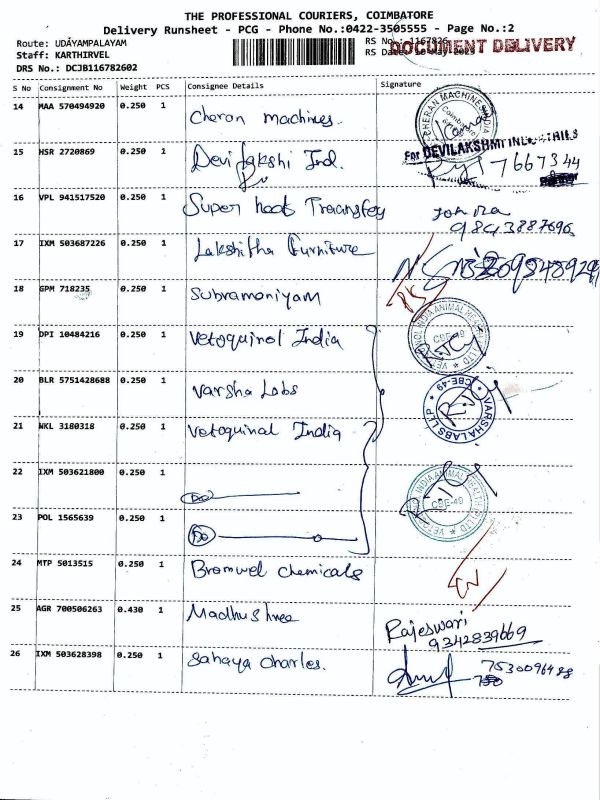 THE PROFESSIONAL COURIERS, COIMBATORE
Delivery Runsheet - PCG - Phone No.:0422-3505555 - Page No.:2
Route: UDAYAMPALAYAM
RS No.: 1167826
Staff: KARTHIRVEL
RS Date:
DOCUMENT DELIVERY
DRS No.: DCJB116782602
S No Consignment No Weight PCS Consignee Details Signature
14 MAA 570494920 0.250 1 Cheran machines.
CHERAN MACHINES INDIA
Coimbatore
15 HSR 2720869 0.250 1 Devi lakshi Ind.
For DEVILAKSHMI INDUSTRIES
7667344
16 VPL 941517520 0.250 1 Super heat Transfer
9843887696
17 IXM 503687226 0.250 1 Lakshitha Furniture
18 GPM 718235 0.250 1 Subramaniyam
19 DPI 10484216 0.250 1 Vetoquinol India
VETOQUINOL INDIA ANIMAL HEALTH PVT LTD
CBE-49
20 BLR 5751428688 0.250 1 Varsha Labs
VARSHA LABS LLP
CBE-49
21 NKL 3180318 0.250 1 Vetoquinal India
22 IXM 503621800 0.250 1 Do
VETOQUINOL INDIA ANIMAL HEALTH PVT LTD
CBE-49
23 POL 1565639 0.250 1 Do
24 MTP 5013515 0.250 1 Bromwel chemicals
25 AGR 700506263 0.430 1 Madhushree
Rajeswari
9342839669
26 IXM 503628398 0.250 1 Sahaya charles.
7530096488